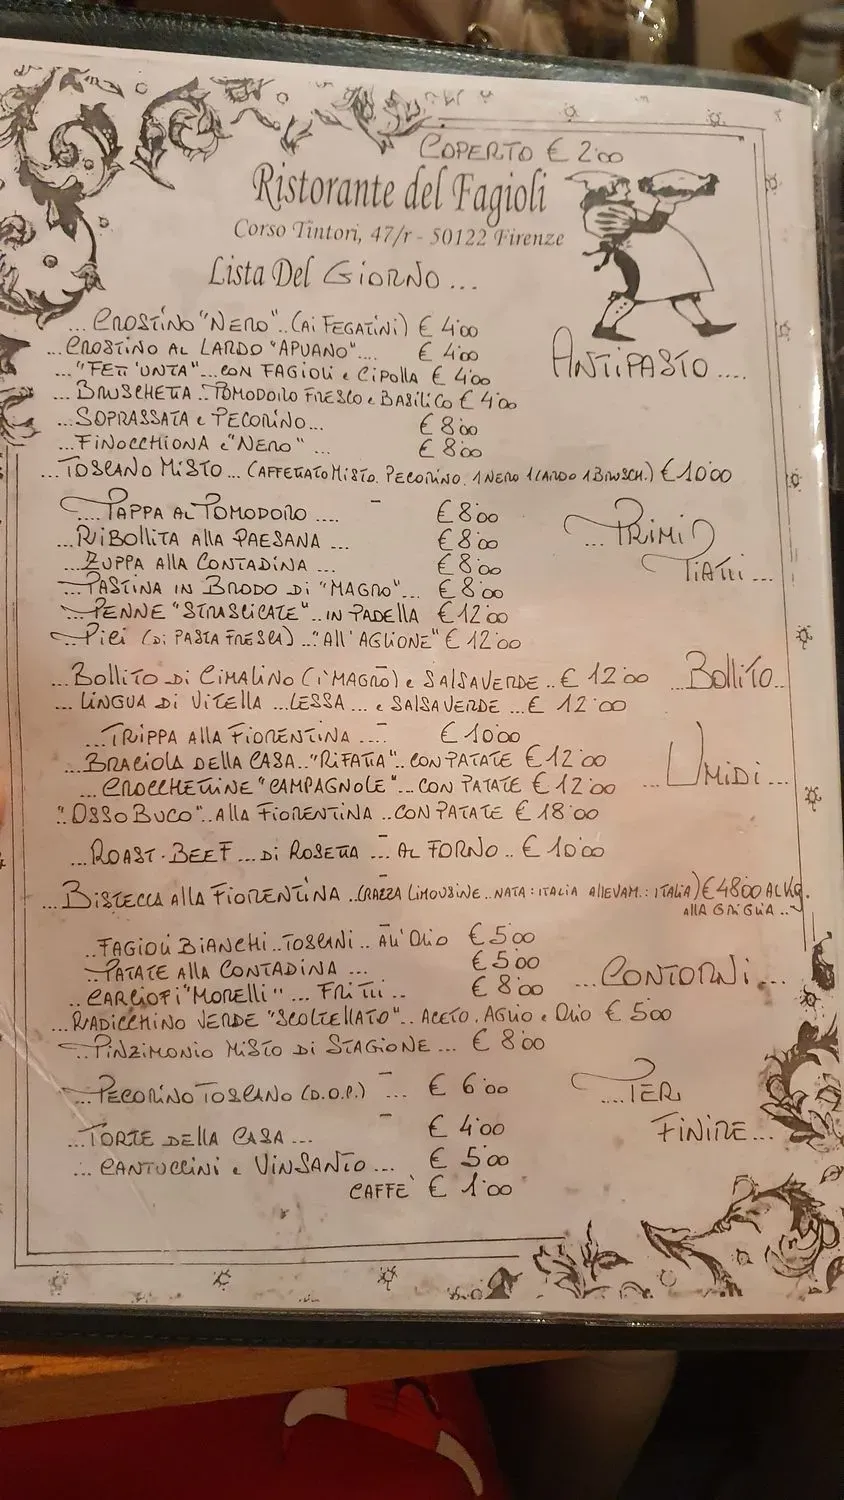 COPERTO € 2'00
Ristorante del Fagioli
Corso Tintori, 47/r - 50122 Firenze
Lista Del GIORNO ...
... CROSTINO "NERO".. (Ai FEGATINI) € 4'00
...CROSTINO AL LARDO "APUANO".... € 4'00
ANTIPASTO ....
.."FETT'UNTA"...CON FAGIOLI e CIPOLLA € 4'00
... BRUSCHETTA .. POMODORO FRESCO e BASILICO € 4'00
...SOPRASSATA e PECORINO... € 8'00
...FINOCCHIONA e "NERO" ... € 8'00
...TOSCANO MISTO ... (AFFETTATO MISTO. PECORINO. 1 NERO 1 LARDO 1 BRUSCH.) € 10'00
....PAPPA AL POMODORO .... € 8'00
...PRIMI
...RIBOLLITA ALLA PAESANA ... € 8'00
...ZUPPA ALLA CONTADINA ... € 8'00
PIATTI ...
...PASTINA IN BRODO DI "MAGRO"... € 8'00
...PENNE "STRASCICATE".. IN PADELLA € 12'00
...PICI (DI PASTA FRESCA) .."ALL'AGLIONE" € 12'00
...BOLLITO DI CIMALINO (I'MAGRO) e SALSAVERDE .. € 12'00 ...BOLLITO..
... LINGUA DI VITELLA ...LESSA ... e SALSAVERDE ... € 12'00
...TRIPPA ALLA FIORENTINA .... € 10'00
...BRACIOLA DELLA CASA.."RIFATTA".. CON PATATE € 12'00
... CROCCHETTINE "CAMPAGNOLE"... CON PATATE € 12'00 ...UMIDI...
"OSSO BUCO".. ALLA FIORENTINA ..CON PATATE € 18'00
...ROAST-BEEF ... DI ROSETTA ... AL FORNO .. € 10'00
...BISTECCA ALLA FIORENTINA ..(RAZZA LIMOUSINE.. NATA: ITALIA ALLEVAM.: ITALIA) € 48'00 AL KG.
ALLA GRIGLIA ..
..FAGIOLI BIANCHI .. TOSCANI .. ALL'OLIO € 5'00
...PATATE ALLA CONTADINA ... € 5'00
...CONTORNI...
.. CARCIOFI "MORELLI" ... FRITTI .. € 8'00
...RADICCHINO VERDE "SCOLTELLATO".. ACETO. AGLIO e OLIO € 5'00
...PINZIMONIO MISTO DI STAGIONE ... € 8'00
...PECORINO TOSCANO (D.O.P.) ... € 6'00
....PER
FINIRE...
...TORTE DELLA CASA ... € 4'00
... CANTUCCINI e VINSANTO ... € 5'00
CAFFE' € 1'00